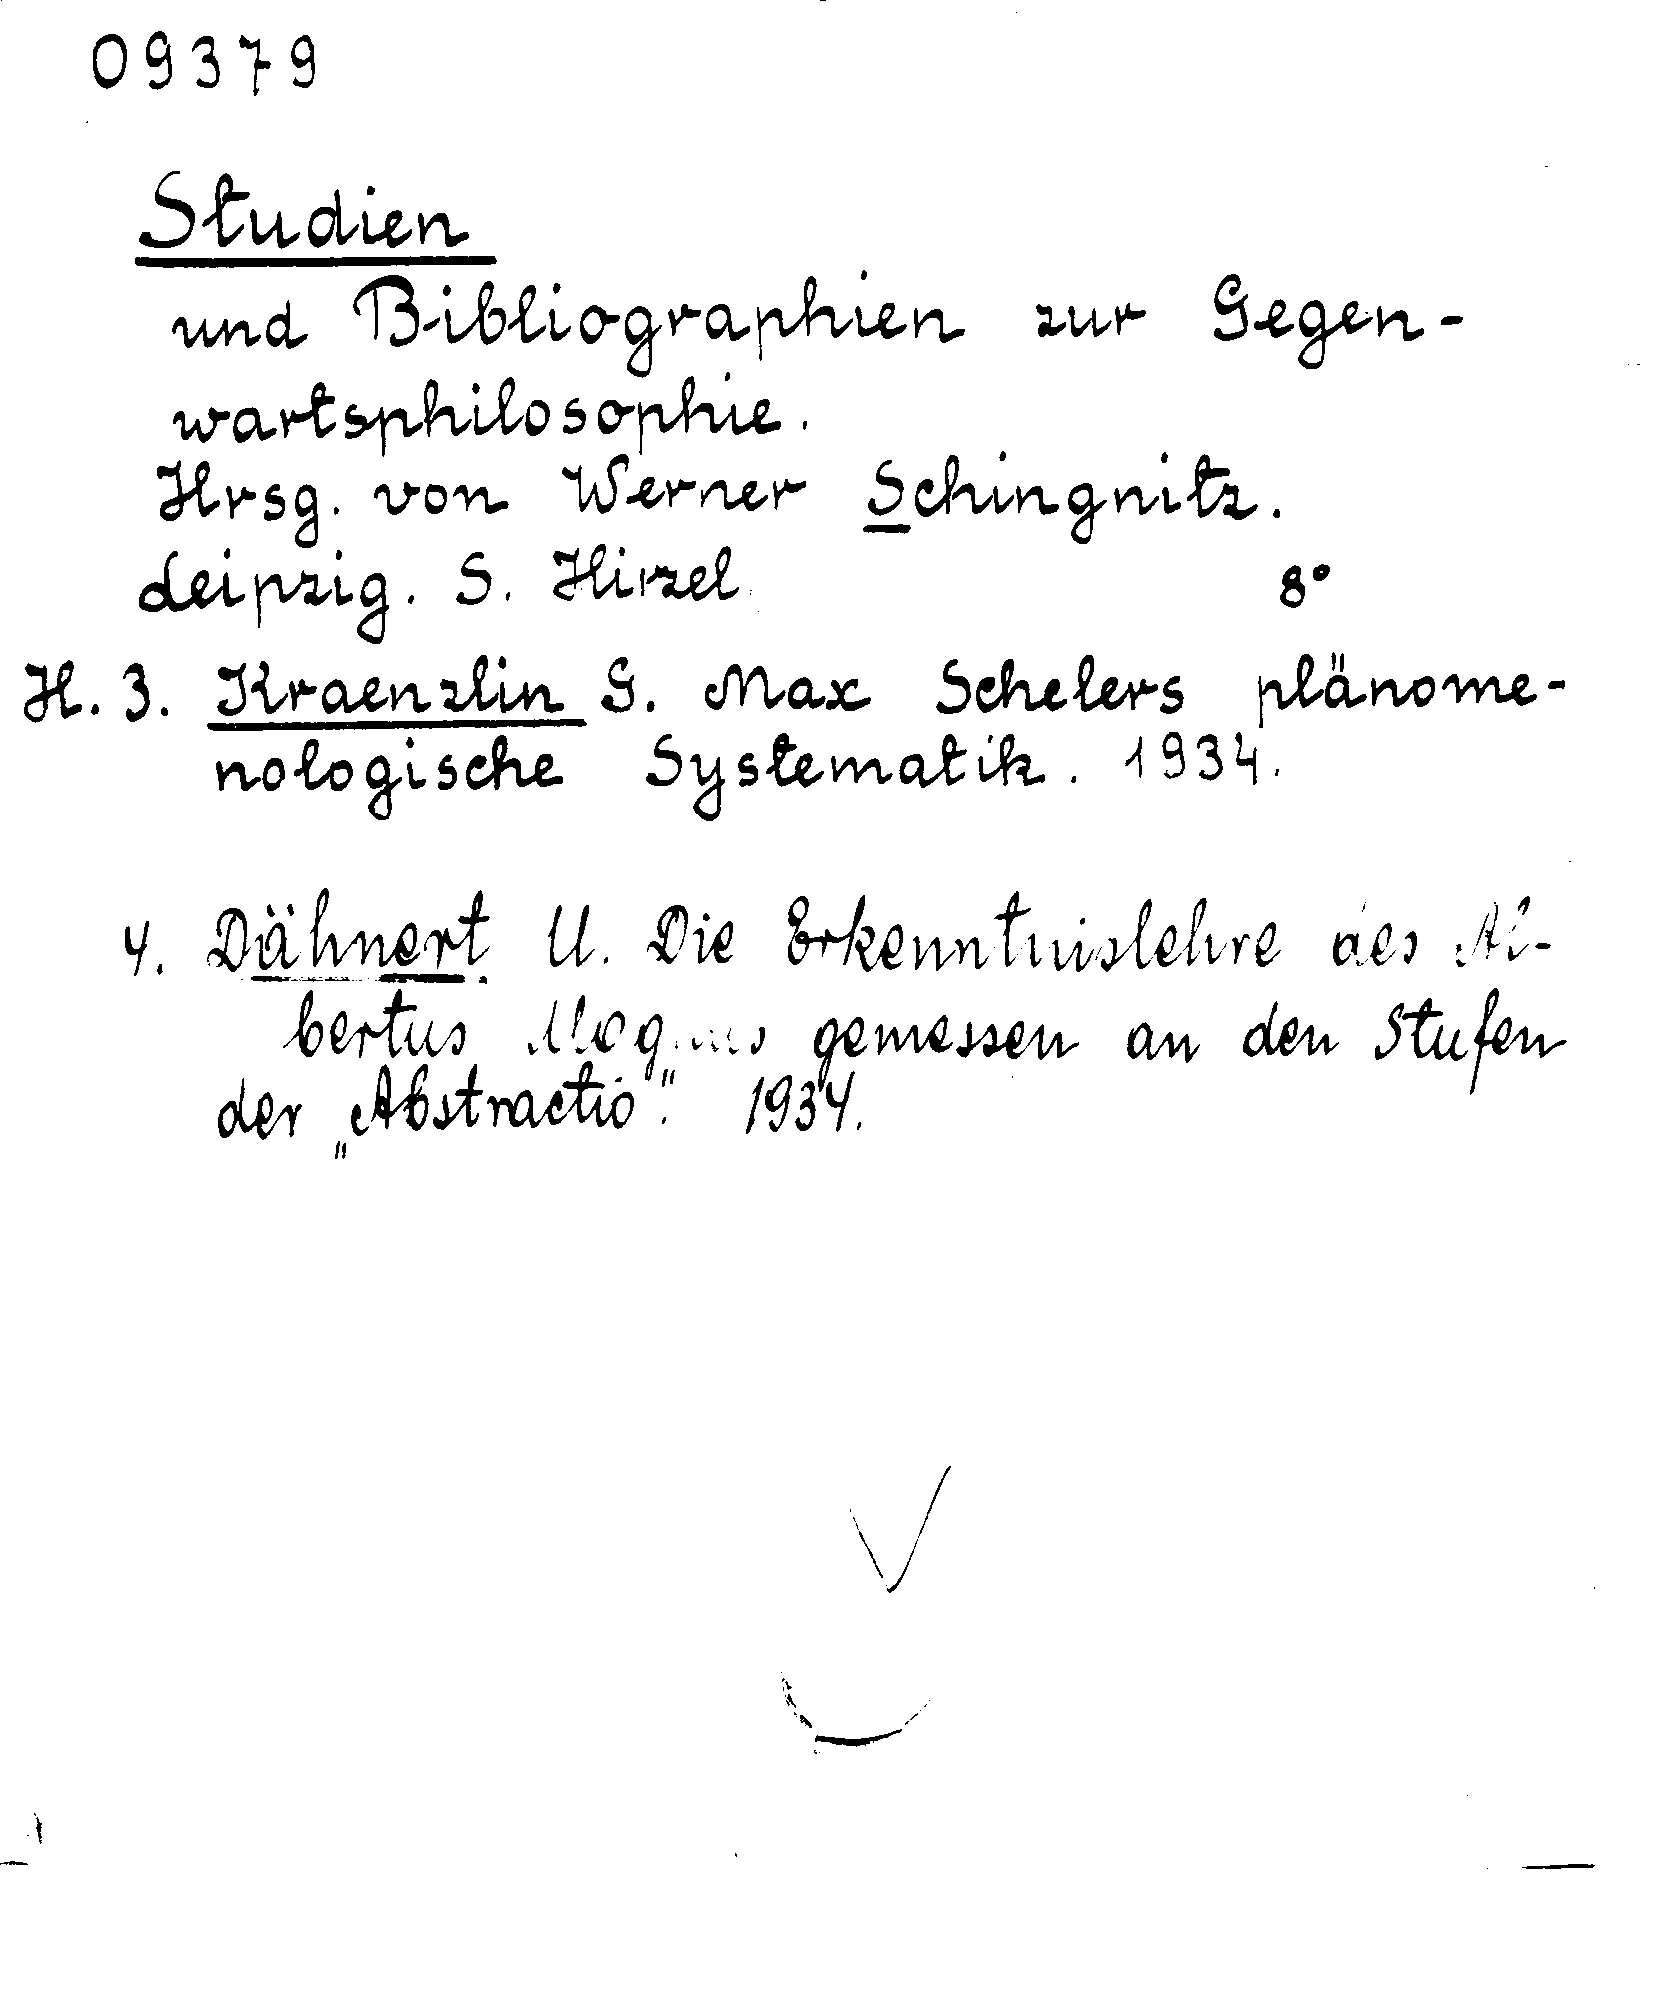 09379
Studien
und Bibliographien zur Gegen-
wartsphilosophie.
Hrsg. von Werner Schingnitz.
Leipzig. S. Hirzel 8°
H. 3. Kraenzlin G. Max Schelers plänome-
nologische Systematik. 1934.
4. Dähnert U. Die Erkenntnislehre des Al-
bertus Magnus gemessen an den Stufen
der „Abstractio". 1934.